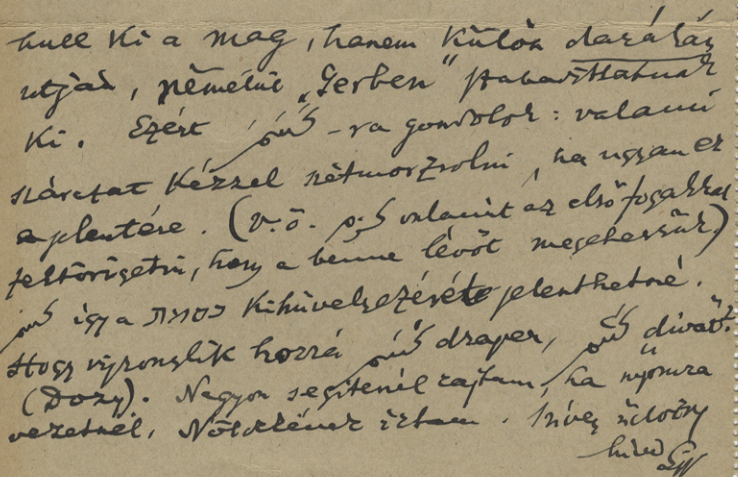 hull ki a mag, hanem külön darálás
utján, németül „Gerben“
ki. Ezért -ra gondolok: valami
szárazat kézzel szétmorzsolni, ha ugyan ez
a jelentése. (V.ö. valamit az első fogakkal
feltörögetni, hogy a benne lévőt megehessük.)
így a כסמת kihüvelyezését jelenthetné.
Hogy viszonylik hozzá draper,
(Dozy). Nagyon segítenél rajtam, ha nyomra
vezetnél. Nöldekének írtam. Szíves üdvözlet
híved